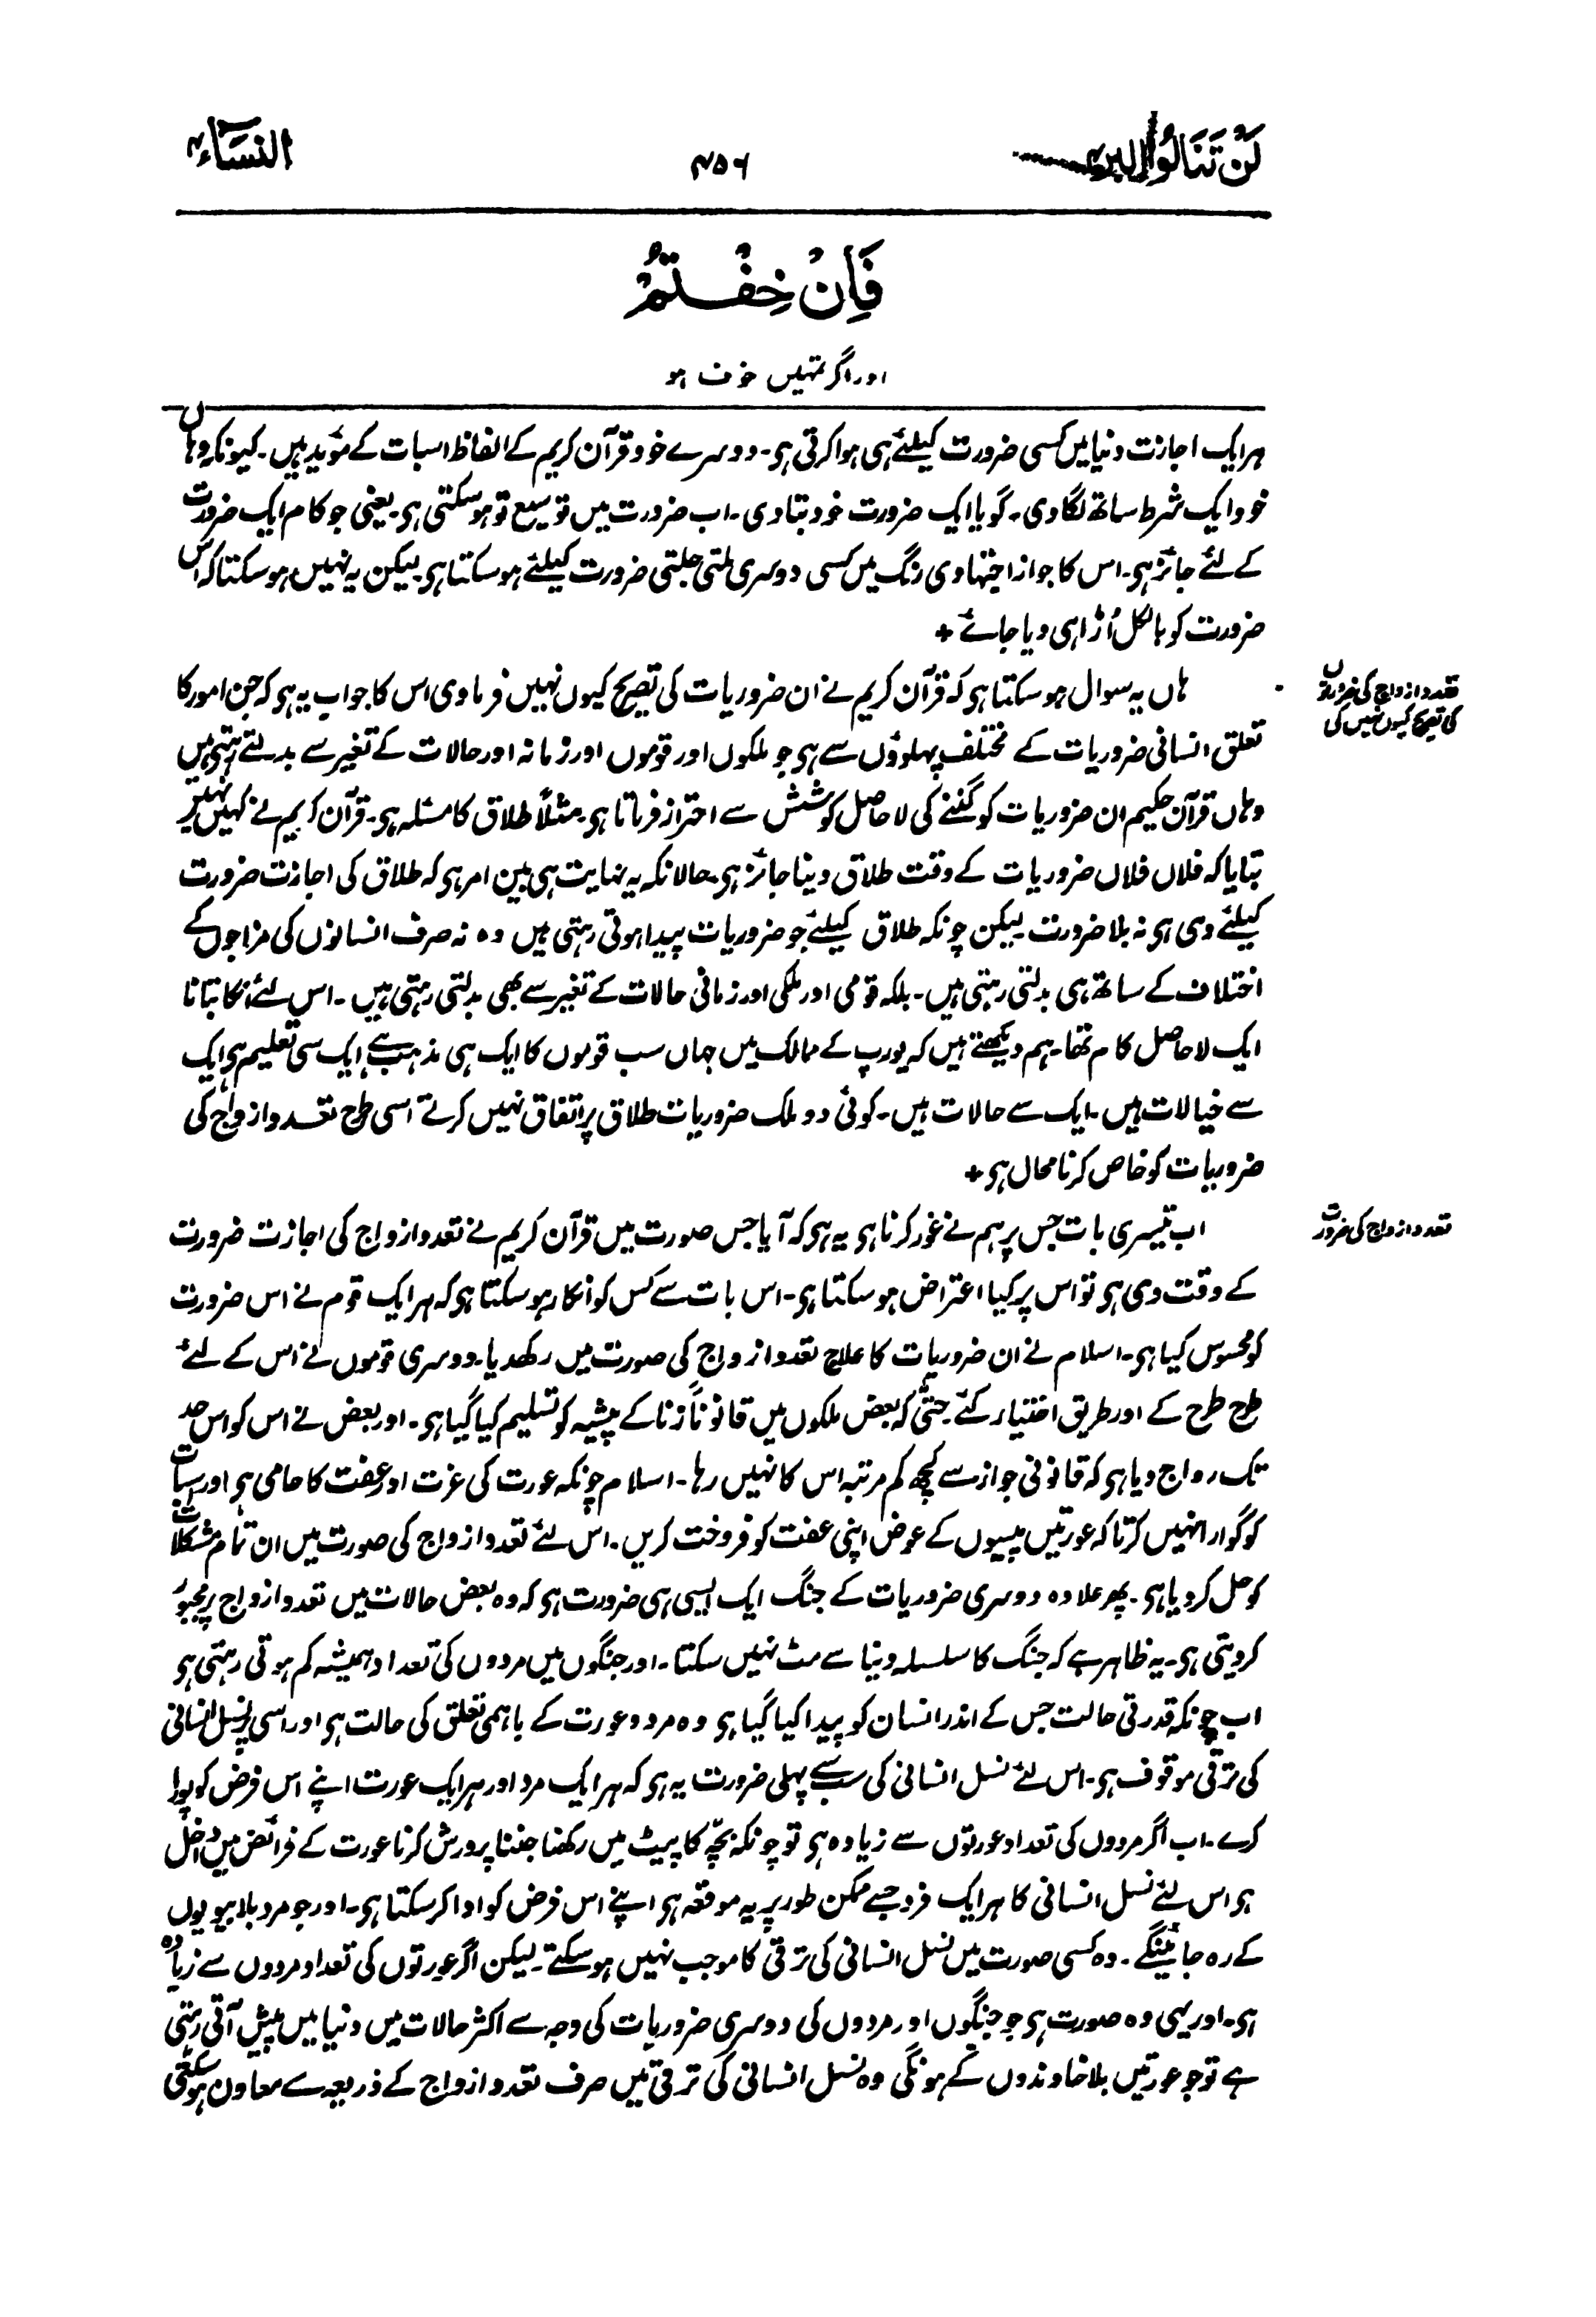 لَنْ تَنَالُوا البر ۴
۴۵۶
النسآء ۴
فَاِنْ خِفْتُمْ
اور اگر تمہیں خوف ہو
ہر ایک اجازت دنیا میں کسی ضرورت کیلئے ہی ہوا کرتی ہی۔ دوسرے خود قرآن کریم کے الفاظ اسبات کے مؤید ہیں۔ کیونکہ وہاں
خود ایک شرط ساتھ لگا دی۔ گویا ایک ضرورت خود بتا دی۔ اب ضرورت میں توسیع تو ہو سکتی ہی۔ یعنی جو کام ایک ضرورت
کے لئے جائز ہی۔ اس کا جواز اجتہادی رنگ میں کسی دوسری ملتی جلتی ضرورت کیلئے ہو سکتا ہی۔ لیکن یہ نہیں ہو سکتا کہ اس
ضرورت کو بالکل اُڑا ہی دیا جائے +
تعدد ازدواج کی ضرورتوں
کی تصریح کیوں نہیں کی
ہاں یہ سوال ہو سکتا ہی کہ قرآن کریم نے ان ضروریات کی تصریح کیوں نہیں فرمادی اس کا جواب یہ ہی کہ جن امور کا
تعلق انسانی ضروریات کے مختلف پہلوؤں سے ہی جو ملکوں اور قوموں اور زمانہ اور حالات کے تغیر سے بدلتے رہتے ہیں
وہاں قرآن حکیم ان ضروریات کو گننے کی لا حاصل کوشش سے احتراز فرماتا ہی۔ مثلاً طلاق کا مسئلہ ہی۔ قرآن کریم نے کہیں نہیں
بتایا کہ فلاں فلاں ضروریات کے وقت طلاق دینا جائز ہی۔ حالانکہ یہ نہایت ہی بین امر ہی کہ طلاق کی اجازت ضرورت
کیلئے دی ہی نہ بلا ضرورت لیکن چونکہ طلاق کیلئے جو ضروریات پیدا ہوتی رہتی ہیں وہ نہ صرف انسانوں کی مزاجوں کے
اختلاف کے ساتھ ہی بدلتی رہتی ہیں۔ بلکہ قومی اور ملکی اور زمانی حالات کے تغیر سے بھی بدلتی رہتی ہیں۔ اس لئے انکا بتانا
ایک لا حاصل کام تھا۔ ہم دیکھتے ہیں کہ یورپ کے ممالک میں جہاں سب قوموں کا ایک ہی مذہب ہے ایک سی تعلیم ہی ایک
سے خیالات ہیں۔ ایک سے حالات ہیں۔ کوئی دو ملک ضروریات طلاق پر اتفاق نہیں کرتے اسی طرح تعدد ازدواج کی
ضروریات کو خاص کرنا محال ہی +
تعدد ازدواج کی ضرورت
اب تیسری بات جس پر ہم نے غور کرنا ہی یہ ہی کہ آیا جس صورت میں قرآن کریم نے تعدد ازدواج کی اجازت ضرورت
کے وقت دی ہی تو اس پر کیا اعتراض ہو سکتا ہی۔ اس بات سے کس کو انکار ہو سکتا ہی کہ ہر ایک قوم نے اس ضرورت
کو محسوس کیا ہی۔ اسلام نے ان ضروریات کا علاج تعدد ازدواج کی صورت میں رکھدیا۔ دوسری قوموں نے اس کے لئے
طرح طرح کے اور طریق اختیار کئے حتیٰ کہ بعض ملکوں میں قانوناً زنا کے پیشہ کو تسلیم کیا گیا ہی۔ اور بعض نے اس کو اس حد
تک رواج دیا ہی کہ قانونی جواز سے کچھ کم مرتبہ اس کا نہیں رہا۔ اسلام چونکہ عورت کی عزت اور عفت کا حامی ہی اور اس بات
کو گوارا نہیں کرتا کہ عورتیں پیسوں کے عوض اپنی عفت کو فروخت کریں۔ اس لئے تعدد ازدواج کی صورت میں ان تمام مشکلات
کو حل کر دیا ہی۔ پھر علاوہ دوسری ضروریات کے جنگ ایک ایسی ہی ضرورت ہی کہ وہ بعض حالات میں تعدد ازدواج پر مجبور
کر دیتی ہی۔ یہ ظاہر ہے کہ جنگ کا سلسلہ دنیا سے مٹ نہیں سکتا۔ اور جنگوں میں مردوں کی تعداد ہمیشہ کم ہوتی رہتی ہی
اب چونکہ قدرتی حالت جس کے اندر انسان کو پیدا کیا گیا ہی وہ مرد و عورت کے باہمی تعلق کی حالت ہی اور اسی پر نسل انسانی
کی ترقی موقوف ہی۔ اس لئے نسل انسانی کی سب سے پہلی ضرورت یہ ہی کہ ہر ایک مرد اور ہر ایک عورت اپنے اس فرض کو پورا
کرے۔ اب اگر مردوں کی تعداد عورتوں سے زیادہ ہی تو چونکہ بچّہ کا پیٹ میں رکھنا جننا پرورش کرنا عورت کے فرائض میں داخل
ہی اس لئے نسل انسانی کا ہر ایک فرد جسے ممکن طور پر یہ موقعہ ہی اپنے اس فرض کو ادا کر سکتا ہی۔ اور جو مرد بلا بیویوں
کے رہ جائینگے۔ وہ کسی صورت میں نسل انسانی کی ترقی کا موجب نہیں ہو سکتے۔ لیکن اگر عورتوں کی تعداد مردوں سے زیادہ
ہی۔ اور یہی وہ صورت ہی جو جنگوں اور مردوں کی دوسری ضروریات کی وجہ سے اکثر حالات میں دنیا میں پیش آتی رہتی
ہے تو جو عورتیں بلا خاوندوں کے ہونگی وہ نسل انسانی کی ترقی میں صرف تعدد ازدواج کے ذریعہ سے معاون ہو سکتی